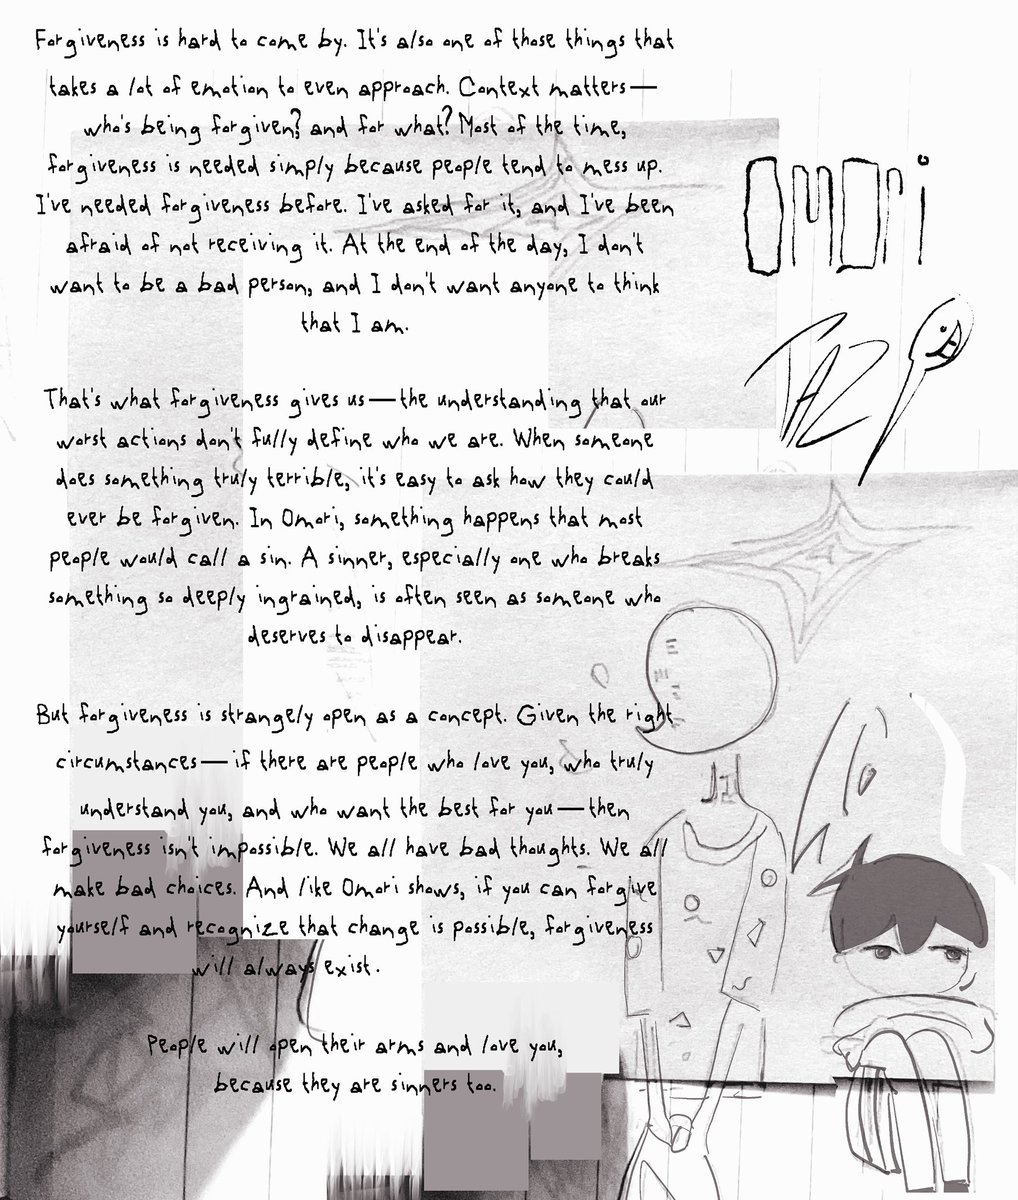 Forgiveness is hard to come by. It's also one of those things that
takes a lot of emotion to even approach. Context matters—
who's being forgiven? and for what? Most of the time,
forgiveness is needed simply because people tend to mess up.
I've needed forgiveness before. I've asked for it, and I've been
afraid of not receiving it. At the end of the day, I don't
want to be a bad person, and I don't want anyone to think
that I am.
That's what forgiveness gives us—the understanding that our
worst actions don't fully define who we are. When someone
does something truly terrible, it's easy to ask how they could
ever be forgiven. In Omori, something happens that most
people would call a sin. A sinner, especially one who breaks
something so deeply ingrained, is often seen as someone who
deserves to disappear.
But forgiveness is strangely open as a concept. Given the right
circumstances—if there are people who love you, who truly
understand you, and who want the best for you—then
forgiveness isn't impossible. We all have bad thoughts. We all
make bad choices. And like Omori shows, if you can forgive
yourself and recognize that change is possible, forgiveness
will always exist.
People will open their arms and love you,
because they are sinners too.
OMORi
TAZ